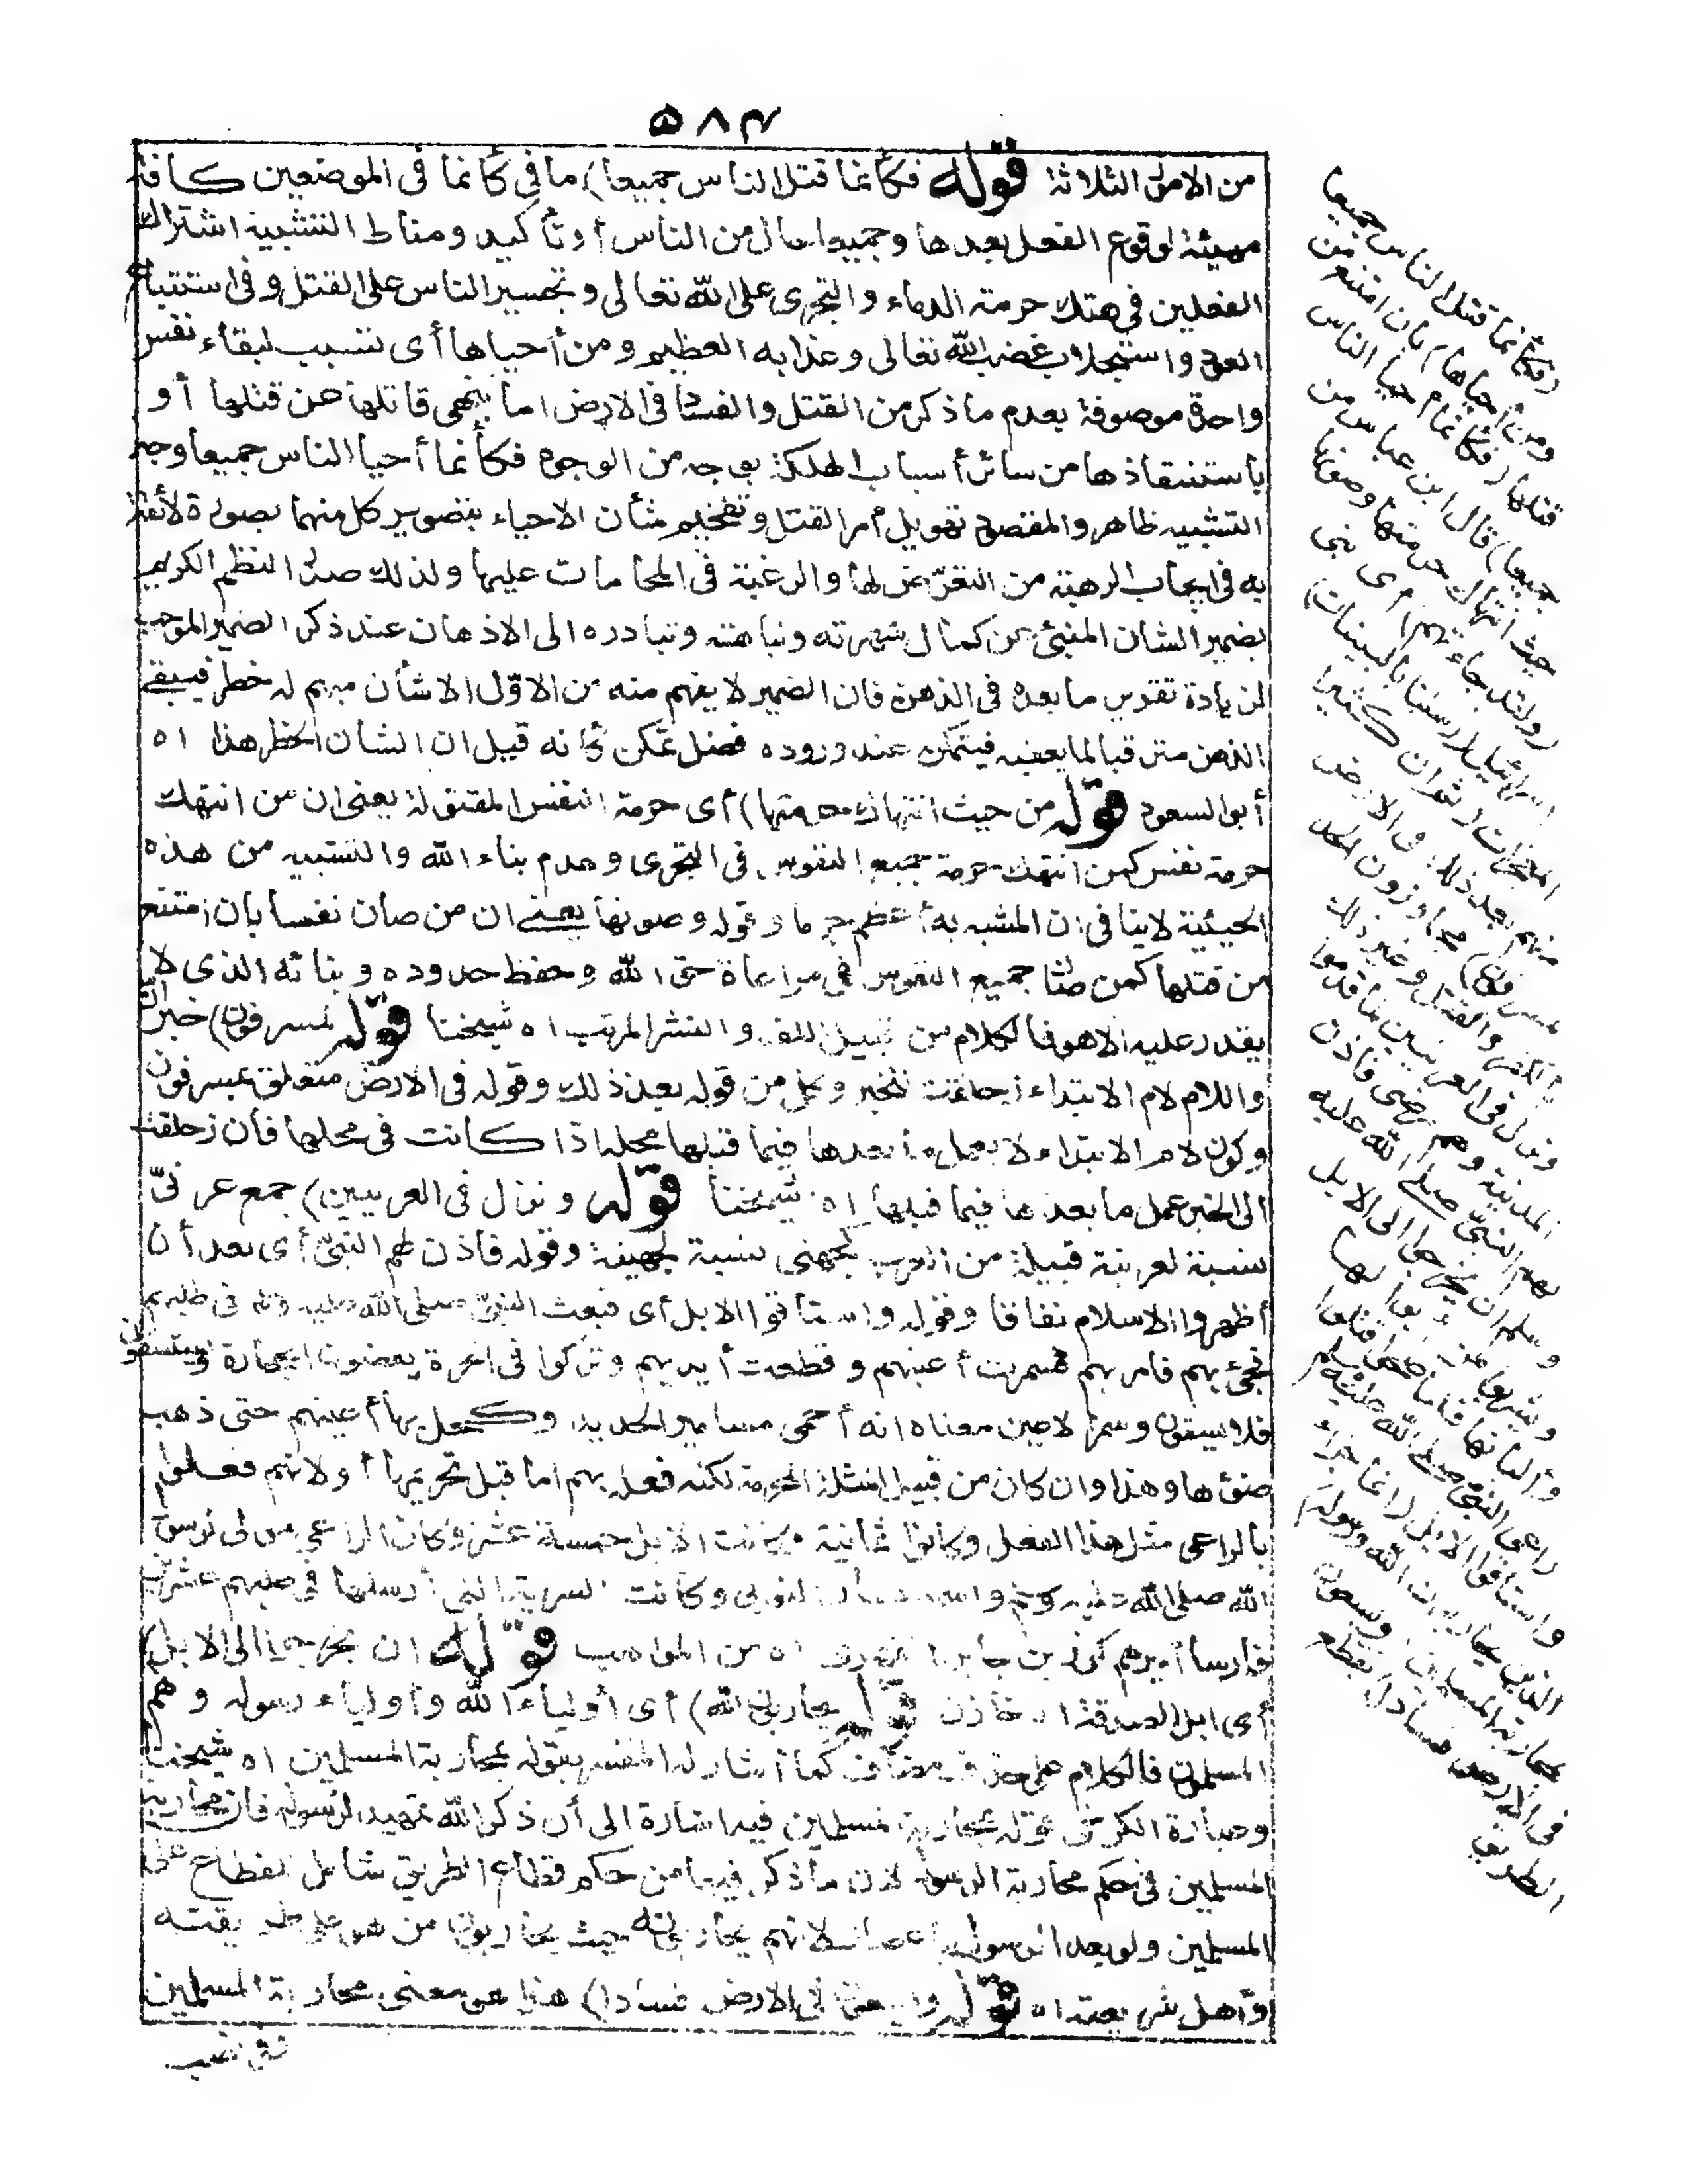 ٥٨٣
من الامور الثلاثة قوله فكأنما قتل الناس جميعا) ما في كأنما في الموضعين كافة
مهيئة لوقوع الفعل بعدها وجميعا حال من الناس أو تأكيد ومناط التشبيه اشتراك
الفعلين في هتك حرمة الدماء والتجرى على الله تعالى وتجسير الناس على القتل وفى استتباع
القود واستجلاب غضب الله تعالى وعذابه العظيم ومن أحياها أى تسبب لبقاء نفس
واحدة موصوفة بعدم ما ذكر من القتل والفساد في الارض اما بنهى قاتلها عن قتلها أو
باستنقاذها من سائر أسباب الهلكة بوجه من الوجوه فكأنما أحيا الناس جميعا وجه
التشبيه ظاهر والمقصود تهويل أمر القتل وتفخيم شأن الاحياء بتصوير كل منهما بصورة لائقة
به في ايجاب الرهبة من التعرّض لها والرغبة في المحامات عليها ولذلك صدّر النظم الكريم
بضمير الشان المنبئ عن كمال شهرته ونباهته وتبادره الى الاذهان عند ذكر الضمير الموجب
لزيادة تقرير ما بعده في الذهن فان الضمير لا يفهم منه من الاوّل الا شأن مبهم له خطر فيبقى
الذهن مترقبا لما يعقبه فيتمكن عند وروده فضل تمكن كأنه قيل ان الشان الخطر هذا اه
أبو السعود قوله من حيث انتهاك حرمتها) أى حرمة النفس المقتولة يعنى ان من انتهك
حرمة نفس كمن انتهك حرمة جميع النفوس في التجرى وهدم بناء الله والتشبيه من هذه
الحيثية لا ينافى ان المشبه به أعظم جرما وقوله وصونها يعنى ان من صان نفسا بان امتنع
من قتلها كمن صان جميع النفوس في مراعاة حق الله وحفظ حدوده وبنائه الذى لا
يقدر عليه الا هو فالكلام من قبيل اللف والنشر المرتب اه شيخنا قوله لمسرفون) خبر انّ
واللام لام الابتداء زحلقت للخبر وكل من قوله بعد ذلك وقوله في الارض متعلق بمسرفون
وكون لام الابتداء لا يعمل ما بعدها فيما قبلها محله اذا كانت في محلها فان زحلقت
الى الخبر عمل ما بعدها فيما قبلها اه شيخنا قوله ونزل في العرنيين) جمع عرنىّ
نسبة لعرينة قبيلة من العرب كجهنى نسبة لجهينة وقوله فاذن لهم النبىّ أى بعد أن
أظهروا الاسلام نفاقا وقوله واستاقوا الابل أى فبعث النبىّ صلى الله عليه وسلم في طلبهم
فجئ بهم فامر بهم فسمرت أعينهم وقطعت أيديهم وتركوا في الحرة يعضون الحجارة ويستسقون
فلا يسقون وسمر الاعين معناه انه أحمى مسامير الحديد وكحل بها أعينهم حتى ذهب
ضوءها وهذا وان كان من قبيل المثلة المحرمة لكنه فعله بهم اما قبل تحريمها أو لانهم فعلوا
بالراعى مثل هذا الفعل وكانوا ثمانية وكانت الابل خمسة عشر وكان الراعى مولى لرسول
الله صلى الله عليه وسلم واسمه يسار النوبى وكانت السرية التى أرسلها في طلبهم عشرين
فارسا أميرهم كرز بن جابر الفهرى اه من المواهب قوله ان يخرجوا الى الابل)
أى ابل الصدقة اه خازن قوله يحاربون الله) أى أولياء الله وأولياء رسوله وهم
المسلمون فالكلام على حذف مضاف كما أشار له المفسر بقوله بمحاربة المسلمين اه شيخنا
وعبارة الكرخى قوله بمحاربة المسلمين فيه اشارة الى أن ذكر الله تمهيد لرسوله فان محاربة
المسلمين في حكم محاربة الرسول لان ما ذكر فيها من حكم قطاع الطريق شامل لقطاع على
المسلمين ولو بعد الرسول باعصار لانهم يحاربونه حيث يحاربون من هو على طريقته
وأهل شريعته اه قوله ويسعون في الارض فسادا) هذا هو معنى محاربة المسلمين
(فكأنما قتل الناس جميعا
ومن أحياها) بان امتنع من
قتلها (فكأنما أحيا الناس
جميعا) قال ابن عباس من
حيث انتهاك حرمتها وصونها
(ولقد جاءتهم) أى بنى
اسرائيل (رسلنا بالبينات)
المعجزات (ثم ان كثيرا
منهم بعد ذلك في الارض
لمسرفون) مجاوزون الحد
بالكفر والقتل وغير ذلك
ونزل في العرنيين لما قدموا
المدينة وهم مرضى فاذن
لهم النبىّ صلى الله عليه
وسلم ان يخرجوا الى الابل
ويشربوا من أبوالها
وألبانها فلما صحوا قتلوا
راعى النبى صلى الله عليه وسلم
واستاقوا الابل (انما جزاء
الذين يحاربون الله ورسوله)
بمحاربة المسلمين (ويسعون
في الارض فسادا) بقطع
الطريق